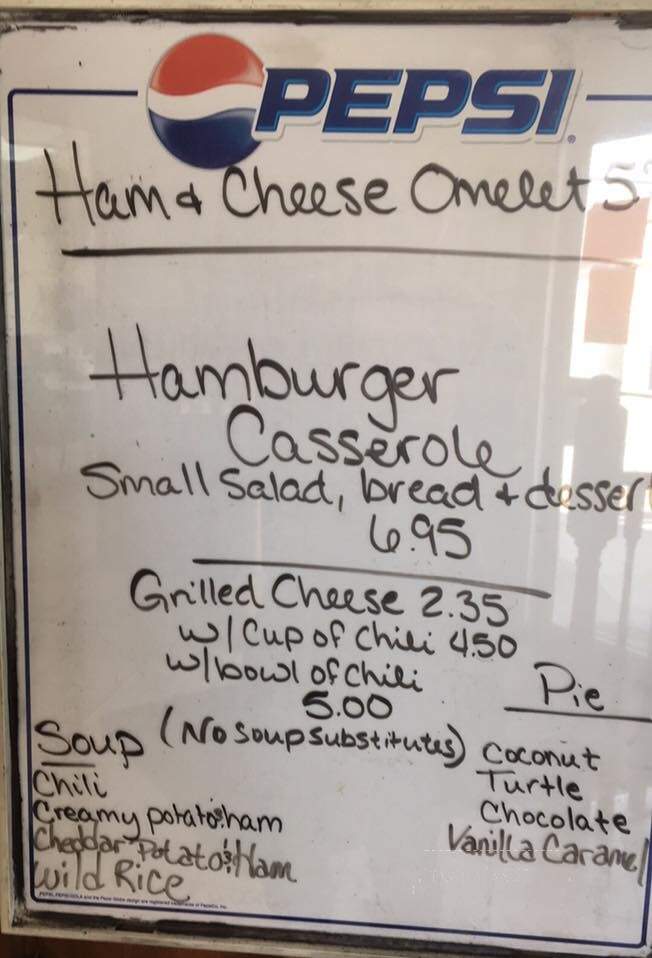 PEPSI
Ham & Cheese Omelet 5
Hamburger
Casserole
Small Salad, bread + desser
6.95
Grilled Cheese 2.35
w/ Cup of Chili 4.50
w/ bowl of Chili
5.00
Pie
Soup (No soup substitutes)
Coconut
Chili
Turtle
Creamy potato & ham
Chocolate
Cheddar Potato & Ham
Vanilla Caramel
Wild Rice